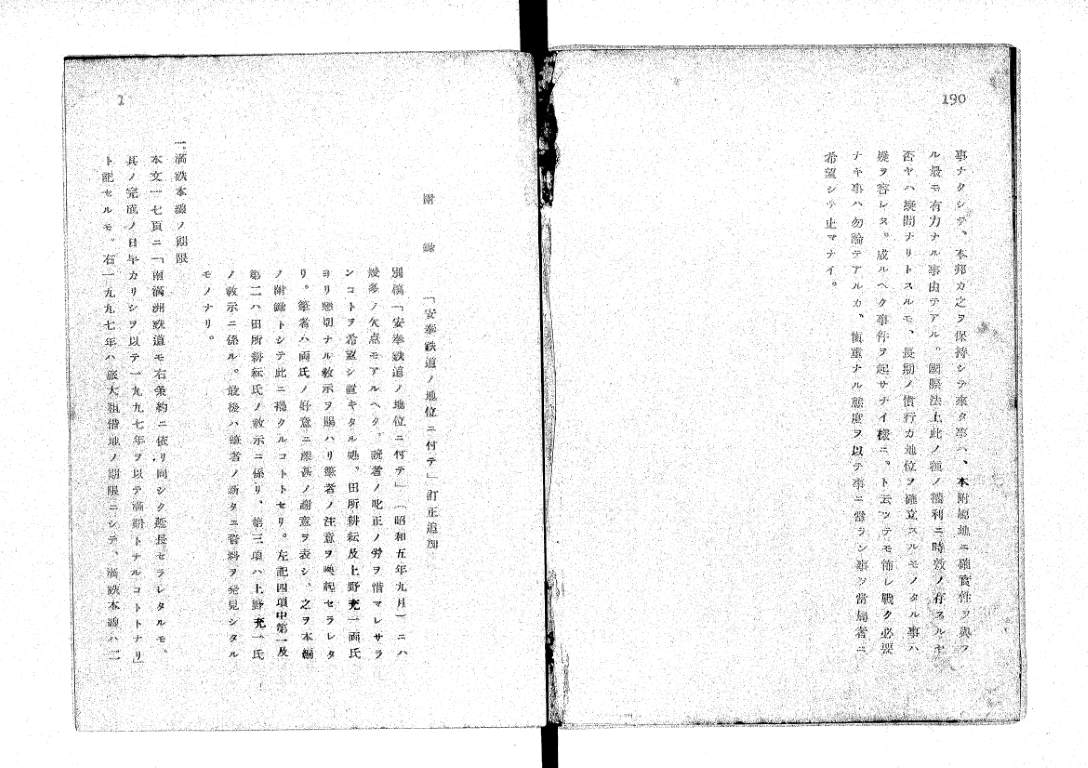 190
事ナクシテ、本邦カ之ヲ保持シテ來タ事ハ、本附屬地ニ確實性ヲ與フ
ル最モ有力ナル事由テアル。國際法上此ノ種ノ權利ニ時效ノ存スルヤ
否ヤハ疑問ナリトスルモ、長期ノ慣行カ地位ヲ確立スルモノタル事ハ
疑ヲ容レス。成ルヘク事件ヲ起サナイ樣ニ。ト云ツテモ怖レ戰ク必要
ナキ事ハ勿論テアルカ、愼重ナル態度ヲ以テ事ニ當ラン事ヲ當局者ニ
希望シテ止マナイ。
1
附錄
「安奉鉄道ノ地位ニ付テ」訂正追加
別稿「安奉鉄道ノ地位ニ付テ」(昭和五年九月)ニハ
幾多ノ欠点モアルヘク、讀者ノ叱正ノ勞ヲ惜マレサラ
ンコトヲ希望シ置キタル処、田所耕耘及上野充一両氏
ヨリ懇切ナル敎示ヲ賜ハリ筆者ノ注意ヲ喚起セラレタ
リ。筆者ハ両氏ノ好意ニ深甚ノ謝意ヲ表シ、之ヲ本編
ノ附錄トシテ此ニ揭クルコトトセリ。左記四項中第一及
第二ハ田所耕耘氏ノ敎示ニ係リ、第三項ハ上野充一氏
ノ敎示ニ係ル。最後ハ筆者ノ新タニ資料ヲ発見シタル
モノナリ。
一、満鉄本線ノ期限
本文一七頁ニ「南満洲鉄道モ右条約ニ依リ同シク延長セラレタルモ、
其ノ完成ノ日早カリシヲ以テ一九九七年ヲ以テ満期トナルコトトナリ」
ト記セルモ。右一九九七年ハ旅大租借地ノ期限ニシテ、満鉄本線ハ二